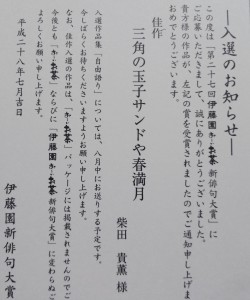 ―入選のお知らせ―
この度は「第二十七回 伊藤園 お～いお茶 新俳句大賞」に
ご応募いただきまして、誠にありがとうございました。
貴方様の作品が、左記の賞を受賞されましたのでご通知申し上げま
おめでとうございます。
佳作
三角の玉子サンドや春満月
柴田 貴薫 様
入選作品集「自由語り」については、八月中にお送りする予定です。
今しばらくお待ちくださいますようお願い申し上げます。
なお、佳作入選の作品は「お～いお茶」パッケージには掲載されませんのでご
今後とも「お～いお茶」ならびに「伊藤園 お～いお茶 新俳句大賞」に変わらぬご
よろしくお願い申し上げます。
平成二十八年七月吉日
伊藤園新俳句大賞